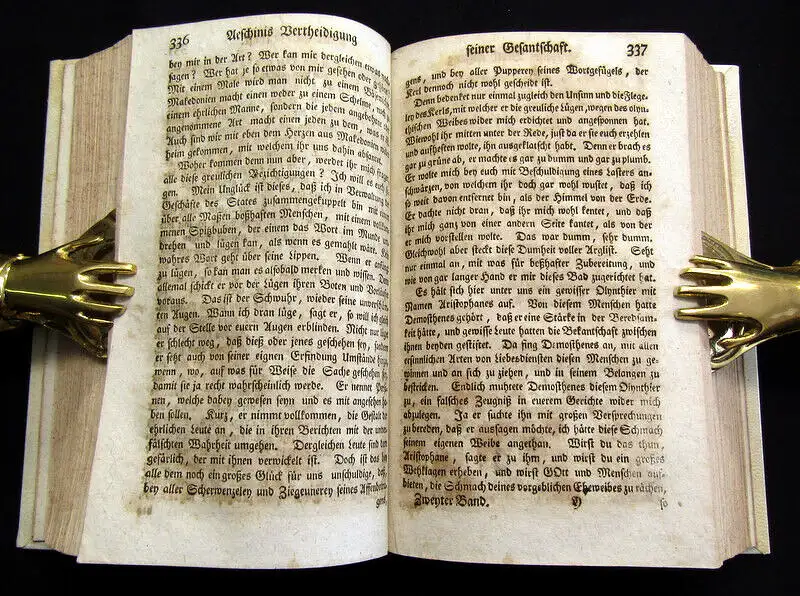 336 Aeschinis Vertheidigung
bey mir in der Art? Wer kan mir dergleichen etwas
sagen? Wer hat je so etwas von mir gesehen oder
Mit einem Male wird man nicht zu einem
Makedonien macht einen weder zu einem Schelme, noch
einem ehrlichen Manne, sondern die jedem angebohrne
angenommene Art macht einen jeden zu dem, was er
Auch sind wir mit eben dem Herzen aus Makedonien
heim gekommen, mit welchem ihr uns dahin absandtet.
Woher kommen denn nun aber, werdet ihr mich fragen,
alle diese greulichen Bezichtigungen? Ich will es euch
gen. Mein Unglück ist dieses, daß ich in Verwaltung der
Geschäfte des States zusammengekuppelt bin mit einem
über alle Maßen boßhaften Menschen, mit einem vollkom-
menen Spigbuben, der einem das Wort im Munde um-
drehen und lügen kan, als wenn es gemahlt wäre. Kein
wahres Wort geht über seine Lippen. Wenn er anfängt
zu lügen, so kan man es alsobald merken und wissen. Denn
allemal schickt er vor der Lügen ihren Boten und Vorläufer
voraus. Das ist der Schwuhr, wieder seine unverschäm-
ten Augen. Wann ich dran lüge, sagt er, so will ich gleich
auf der Stelle vor euern Augen erblinden. Nicht nur lügt
er schlecht weg, daß dieß oder jenes geschehen sey, sondern
er setzt auch von seiner eignen Erfindung Umstände hinzu,
wenn, wo, auf was für Weise die Sache geschehen sey,
damit sie ja recht wahrscheinlich werde. Er nennet Perso-
nen, welche dabey gewesen seyn und es mit angesehen ha-
ben sollen. Kurz, er nimmt vollkommen, die Gestalt der
ehrlichen Leute an, die in ihren Berichten mit der unver-
fälschten Wahrheit umgehen. Dergleichen Leute sind dem
gefärlich, der mit ihnen verwickelt ist. Doch ist das bey
alle dem noch ein großes Glück für uns unschuldige, daß,
bey aller Scherwenzeley und Ziegeunerey seines Affendens,
gens,
seiner Gesantschaft. 337
gens, und bey aller Pupperey seines Wortgefügels, der
Kerl dennoch nicht wohl gescheid ist.
Denn bedenket nur einmal zugleich den Unsinn und die Flege-
ley des Kerls, mit welcher er die greuliche Lügen, wegen des olyn-
thischen Weibes wider mich erdichtet und angesponnen hat.
Wiewohl ihr mitten unter der Rede, just da er sie euch erzehlen
und aufheften wolte, ihn ausgeklascht habt. Denn er brach es
gar zu grüne ab, er machte es gar zu dumm und gar zu plumb.
Er wolte mich bey euch mit Beschuldigung eines Lasters an-
schwärzen, von welchem ihr doch gar wohl wustet, daß ich
so weit davon entfernet bin, als der Himmel von der Erde.
Er dachte nicht dran, daß ihr mich wohl kentet, und daß
ihr mich ganz von einer andern Seite kantet, als von der
er mich vorstellen wolte. Das war dumm, sehr dumm.
Gleichwohl aber steckt diese Dumheit voller Arglist. Seht
nur einmal an, mit was für boßhafter Zubereitung, und
wie von gar langer Hand er mir dieses Bad zugerichtet hat.
Es hält sich hier unter uns ein gewisser Olynthier mit
Namen Aristophanes auf. Von diesem Menschen hatte
Demosthenes gehört, daß er eine Stärke in der Beredsam-
keit hätte, und gewisse Leute hatten die Bekantschaft zwischen
ihnen beyden gestiftet. Da fing Demosthenes an, mit allen
ersinnlichen Arten von Liebesdiensten diesen Menschen zu ge-
winnen und an sich zu ziehen, und in seinem Belangen zu
bestricken. Endlich muhtete Demosthenes diesem Olynthier
zu, ein falsches Zeugniß in euerem Gerichte wider mich
abzulegen. Ja er suchte ihn mit großen Versprechungen
zu bereden, daß er aussagen möchte, ich hätte diese Schmach
seinem eigenen Weibe angethan. Wirst du das thun,
Aristophane, sagte er zu ihm, und wirst du ein großes
Wehklagen erheben, und wirst GOtt und Menschen auf-
bieten, die Schmach deines vorgeblichen Eheweibes zu rächen,
Zweyter Band. Y so